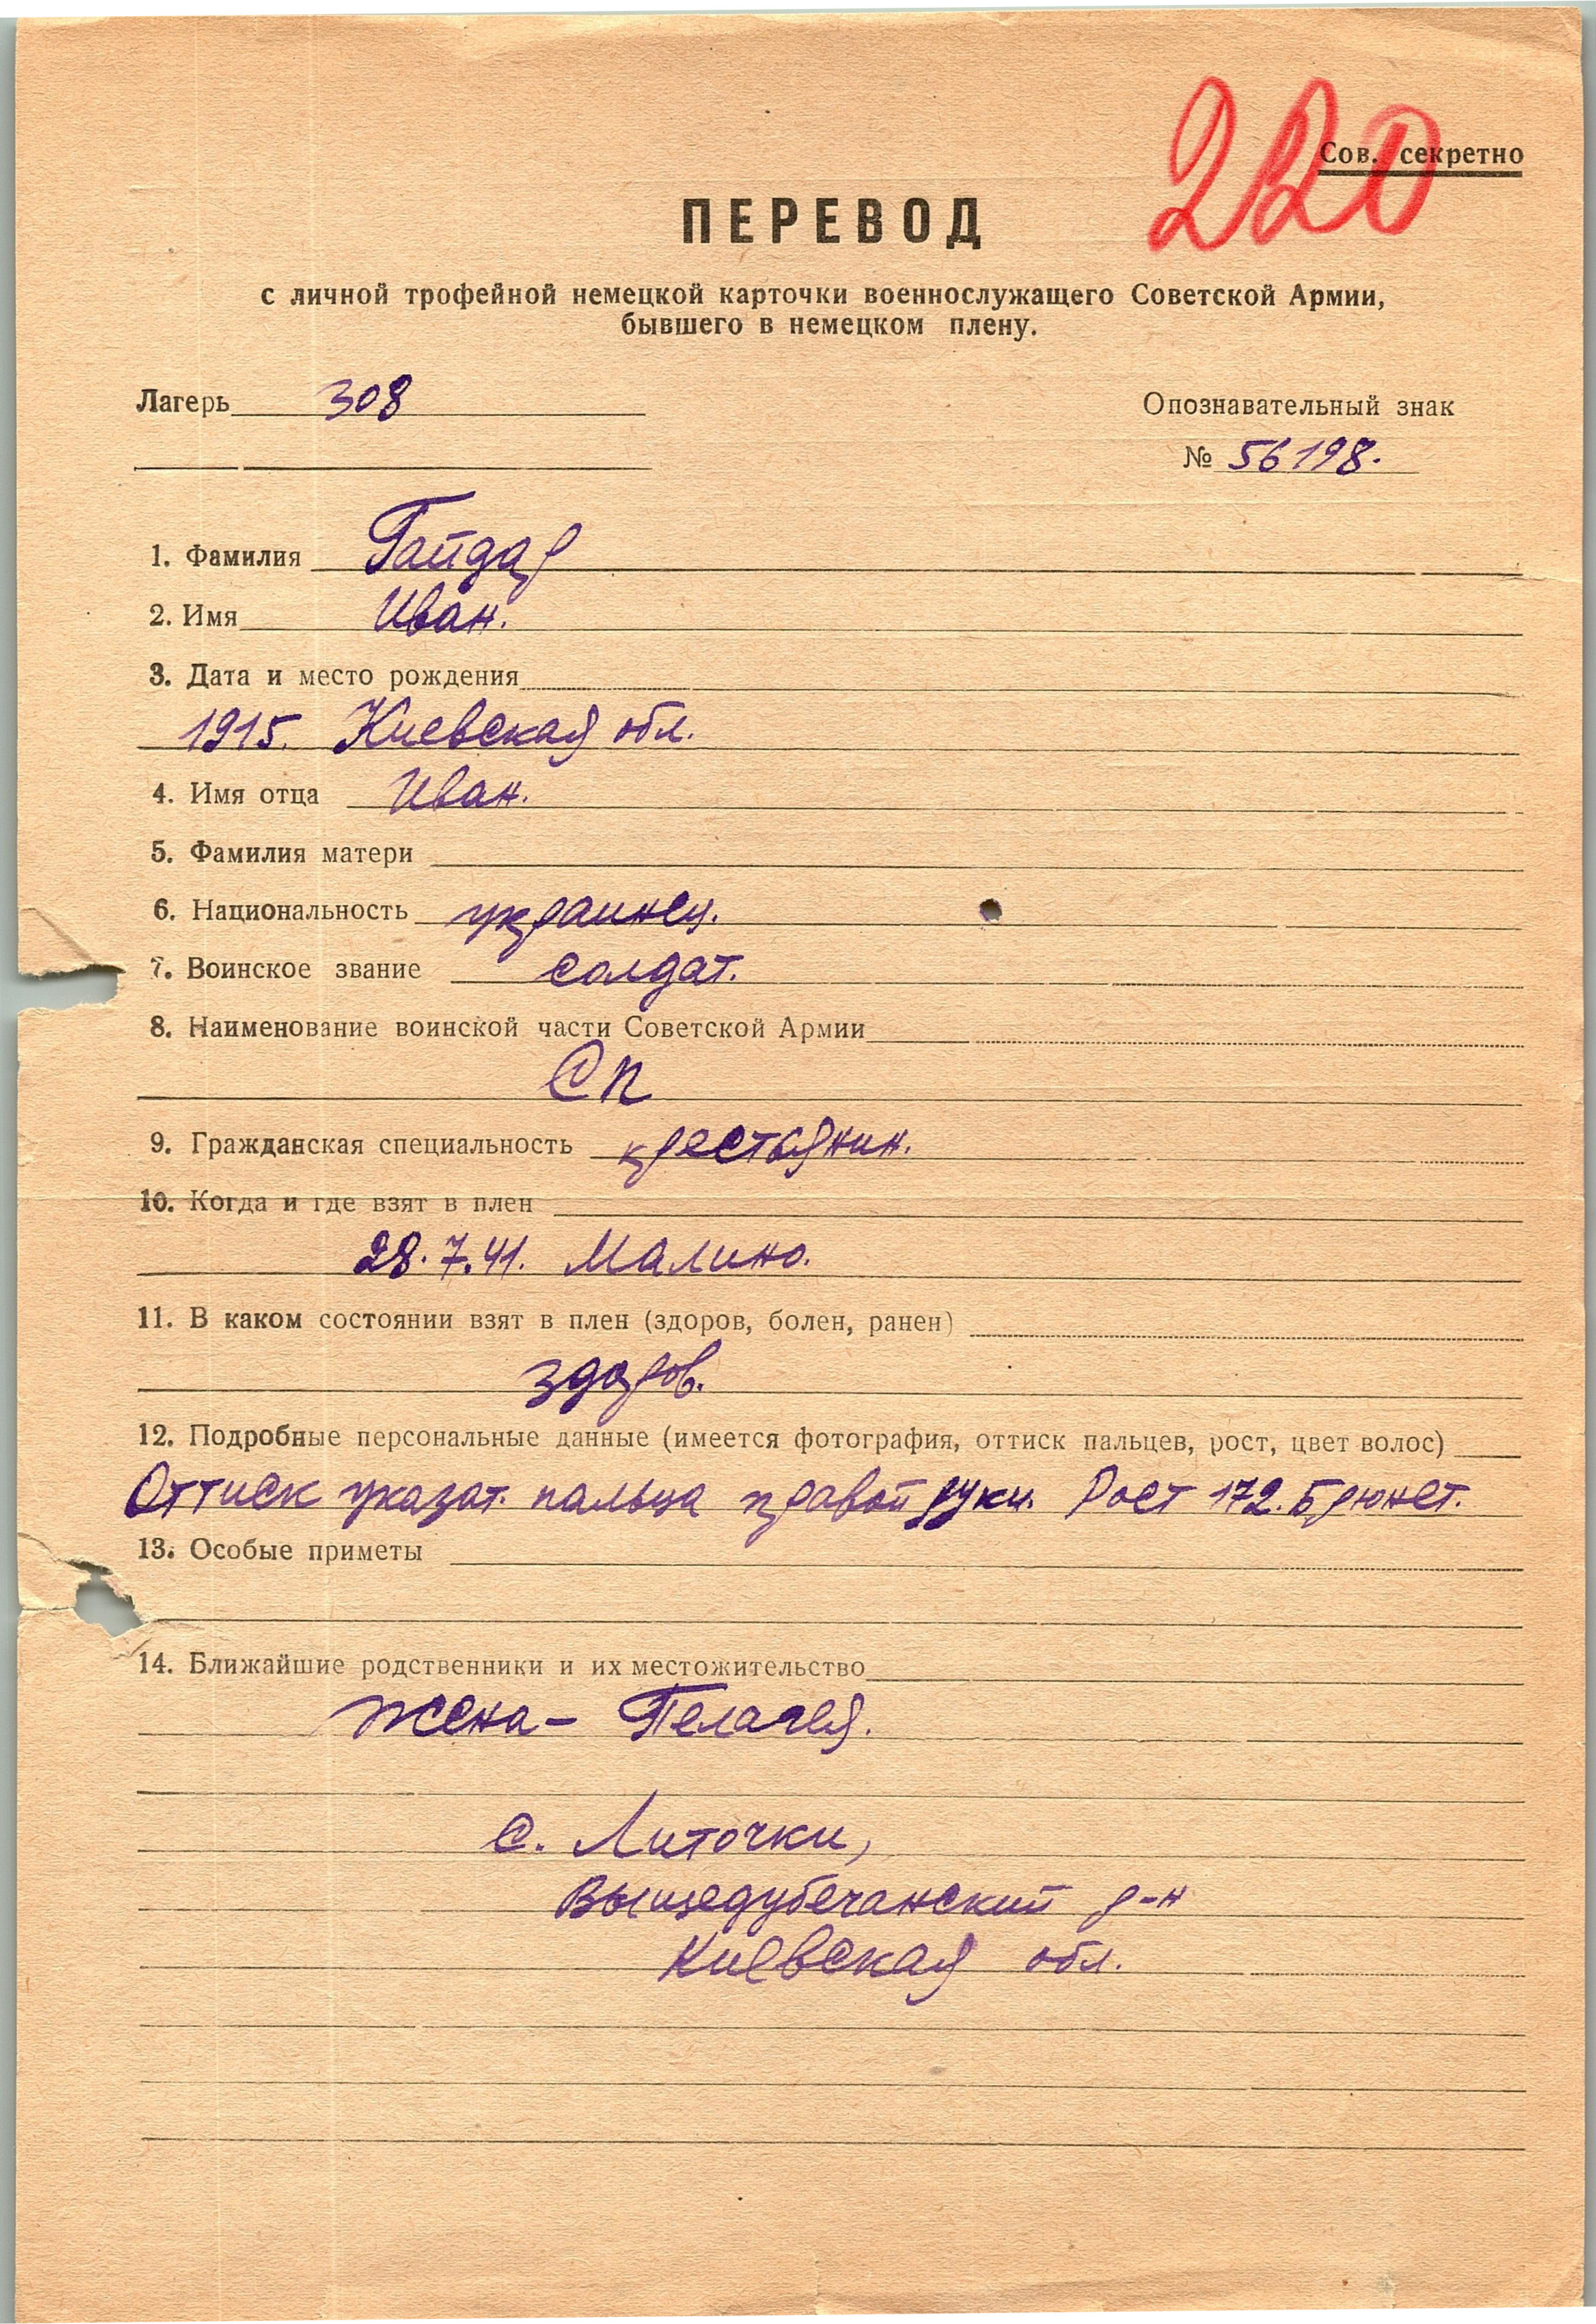 220
Сов. секретно
ПЕРЕВОД
с личной трофейной немецкой карточки военнослужащего Советской Армии,
бывшего в немецком плену.
Лагерь 308
Опознавательный знак
№ 56198.
1. Фамилия Гайдар
2. Имя Иван.
3. Дата и место рождения
1915. Киевская обл.
4. Имя отца Иван.
5. Фамилия матери
6. Национальность украинец.
7. Воинское звание солдат.
8. Наименование воинской части Советской Армии
СП
9. Гражданская специальность крестьянин.
10. Когда и где взят в плен
28.7.41. Малино.
11. В каком состоянии взят в плен (здоров, болен, ранен)
здоров.
12. Подробные персональные данные (имеется фотография, оттиск пальцев, рост, цвет волос)
Оттиск указат. пальца правой руки. Рост 172. Брюнет.
13. Особые приметы
14. Ближайшие родственники и их местожительство
жена – Пелагея.
с. Литочки,
Вышедубечанский р-н
Киевская обл.